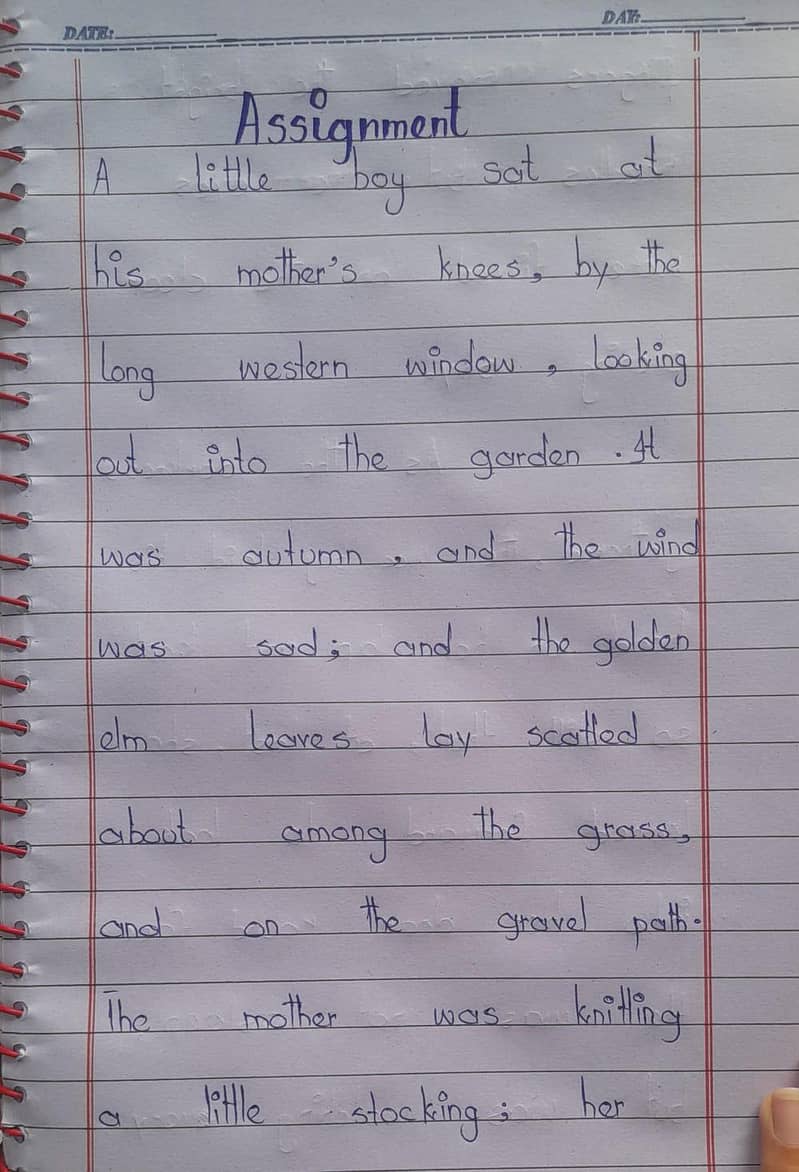 DATE:
DAY:
Assignment
A little boy sat at
his mother's knees, by the
long western window, looking
out into the garden. It
was autumn, and the wind
was sad; and the golden
elm leaves lay scatted
about among the grass,
and on the gravel path.
The mother was knitting
a little stocking; her